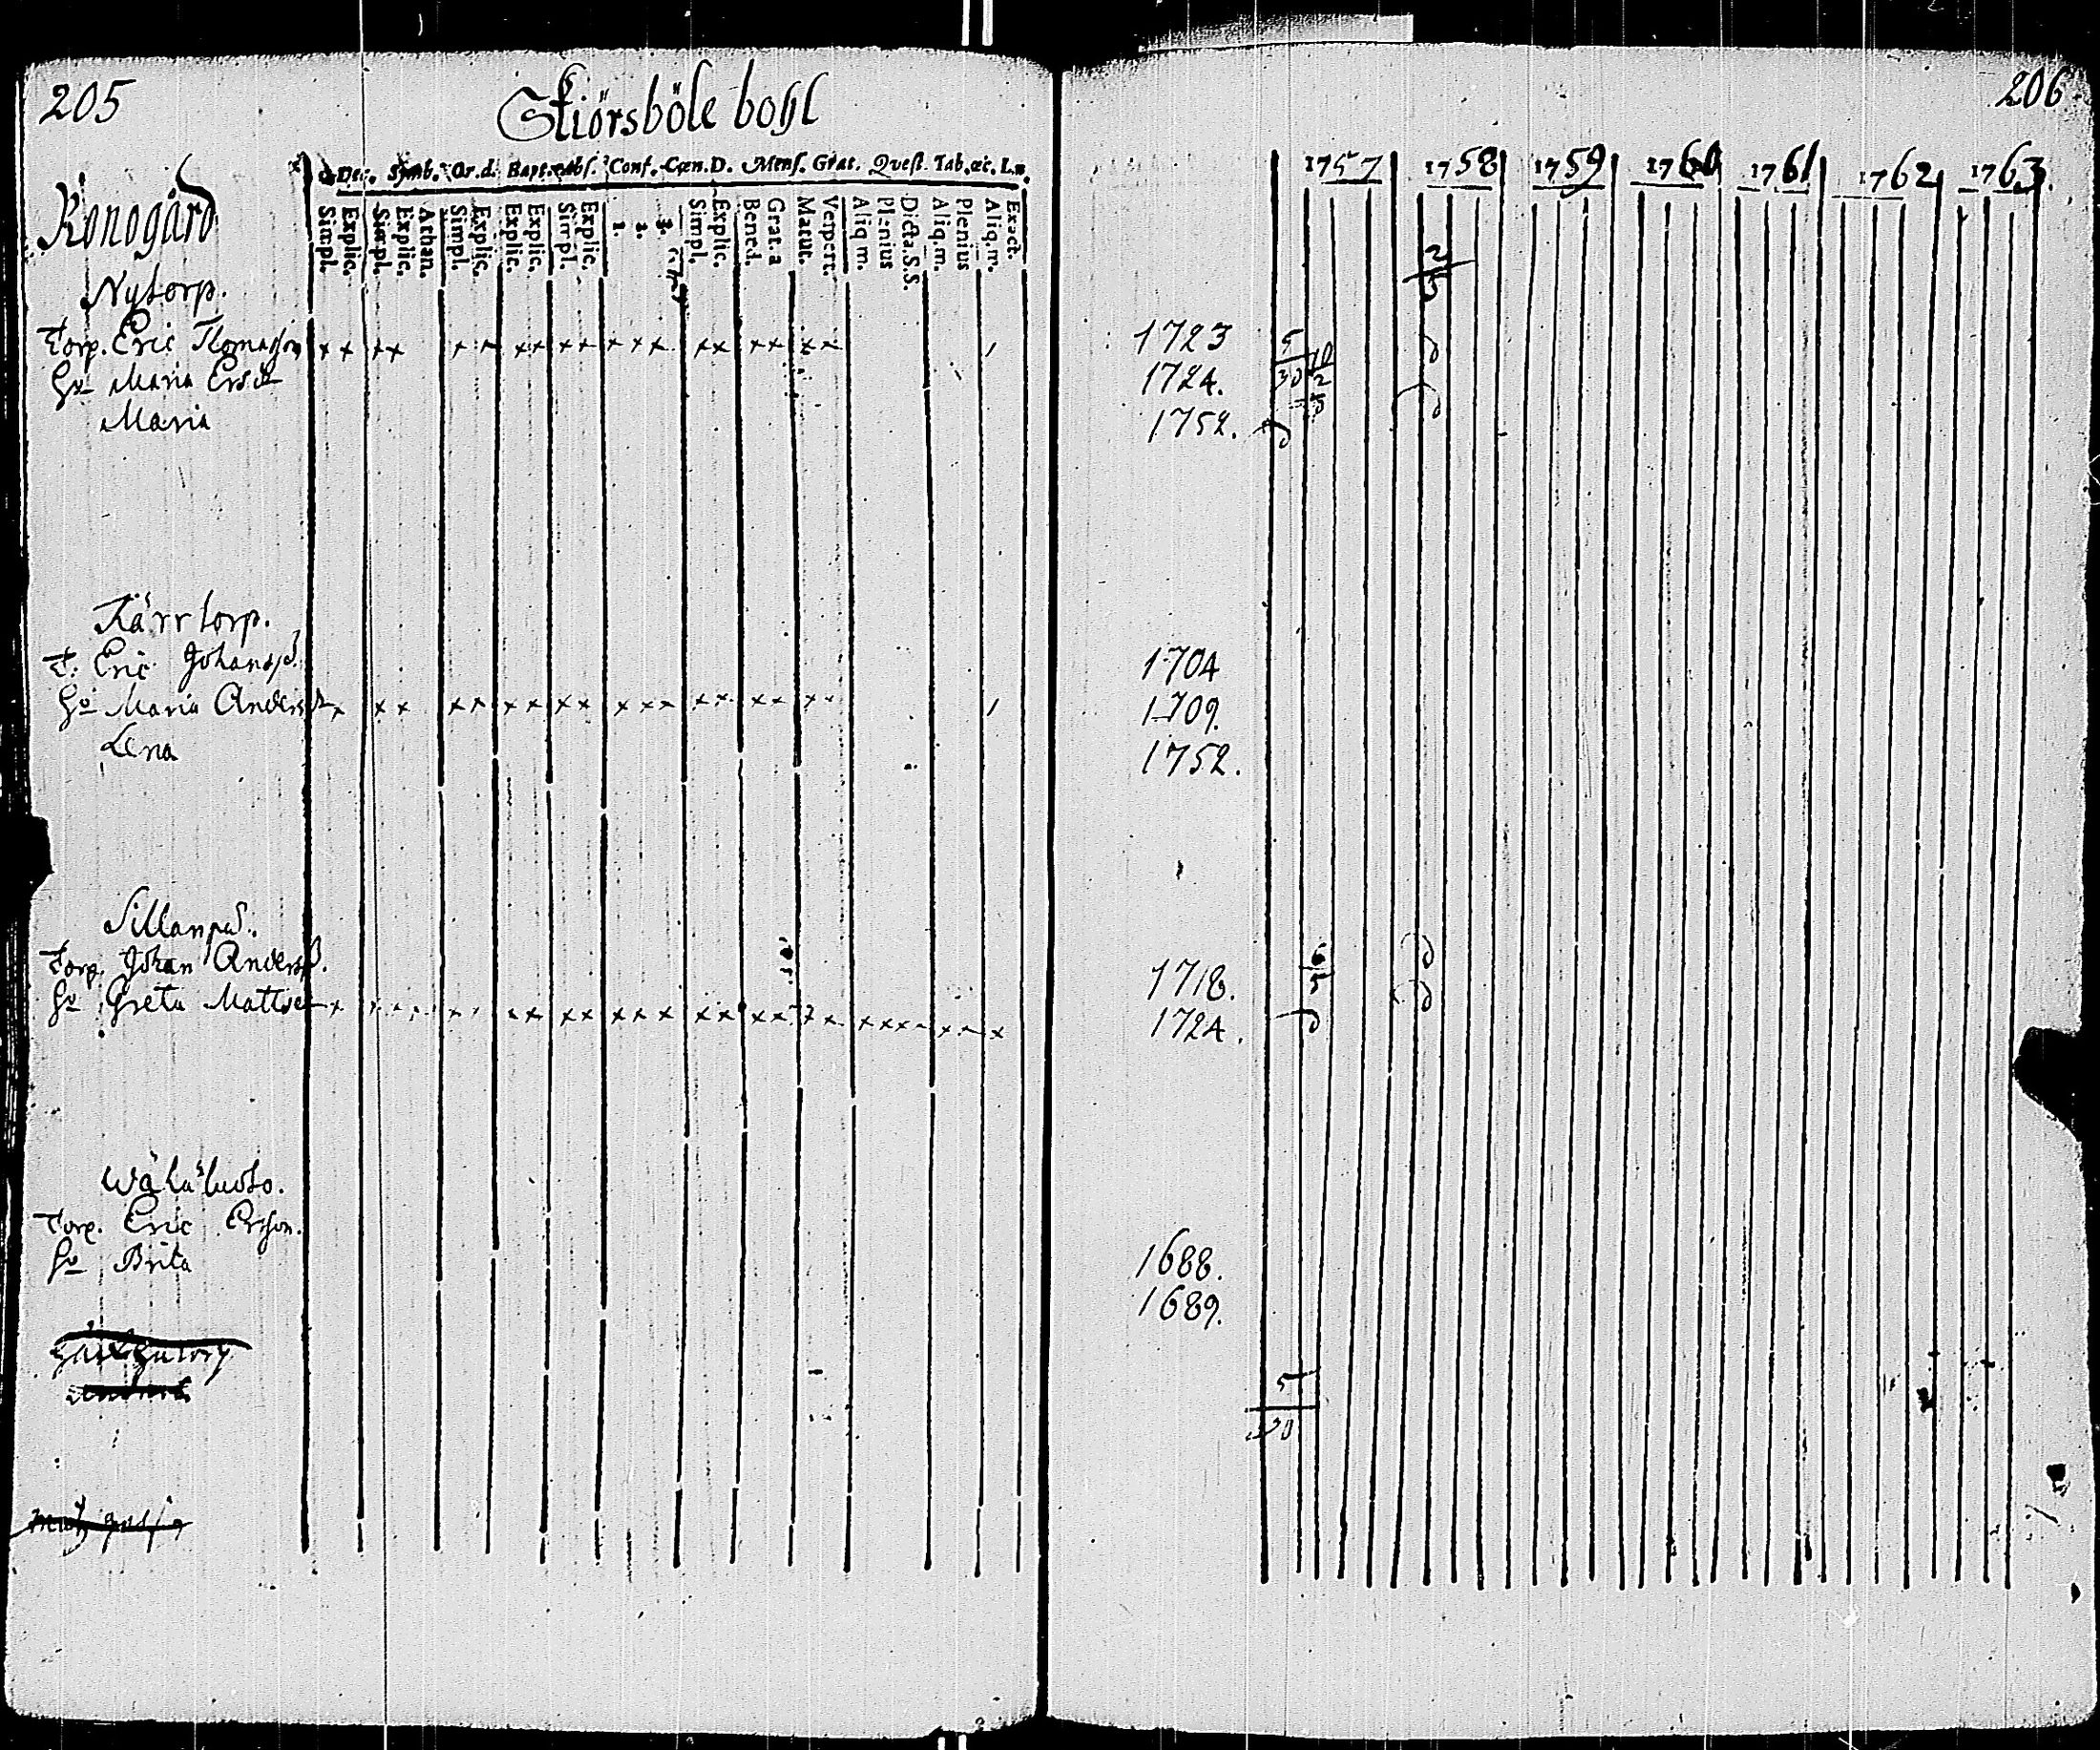 205
Skiörsböle bohl
206
Dec. Symb. Or.d. Bapt. Abs. Conf. Cœn.D. Mens. Grat. Quest. Tab.œc. Ln.
1757 1758 1759 1760 1761 1762 1763.
Konogård
Simpl. Explic. Simpl. Explic. Athan. Simpl. Explic. Explic. Explic. Simpl. Explic. 1. 2. 3. Simpl. Explic. Bened. Grat. a Matut. Vespert. Aliq. m. Plenius Dicta. S.S. Aliq. m. Plenius Aliq. m. Exact.
Nytorp.
Torp. Eric Thomasson 1723
Hu Maria Ersd 1724.
Maria 1752.
Kärrtorp.
T. Eric Johanss. 1704
Hu Maria Andersd 1709.
Lena 1752.
Sillanpä.
Torp. Johan Anderss. 1718.
Hu Greta Matts 1724.
Wähäluoto.
Torp. Eric Ersson. 1688.
Hu Brita 1689.
5
30